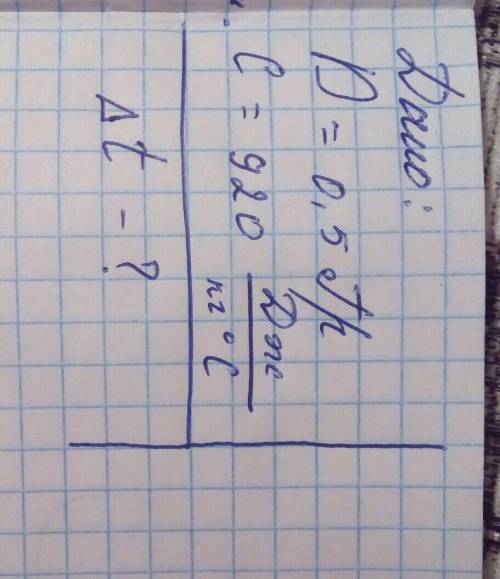 Дано:
D = 0,5 Гр
C = 920 Дж/кг°C
Δt - ?